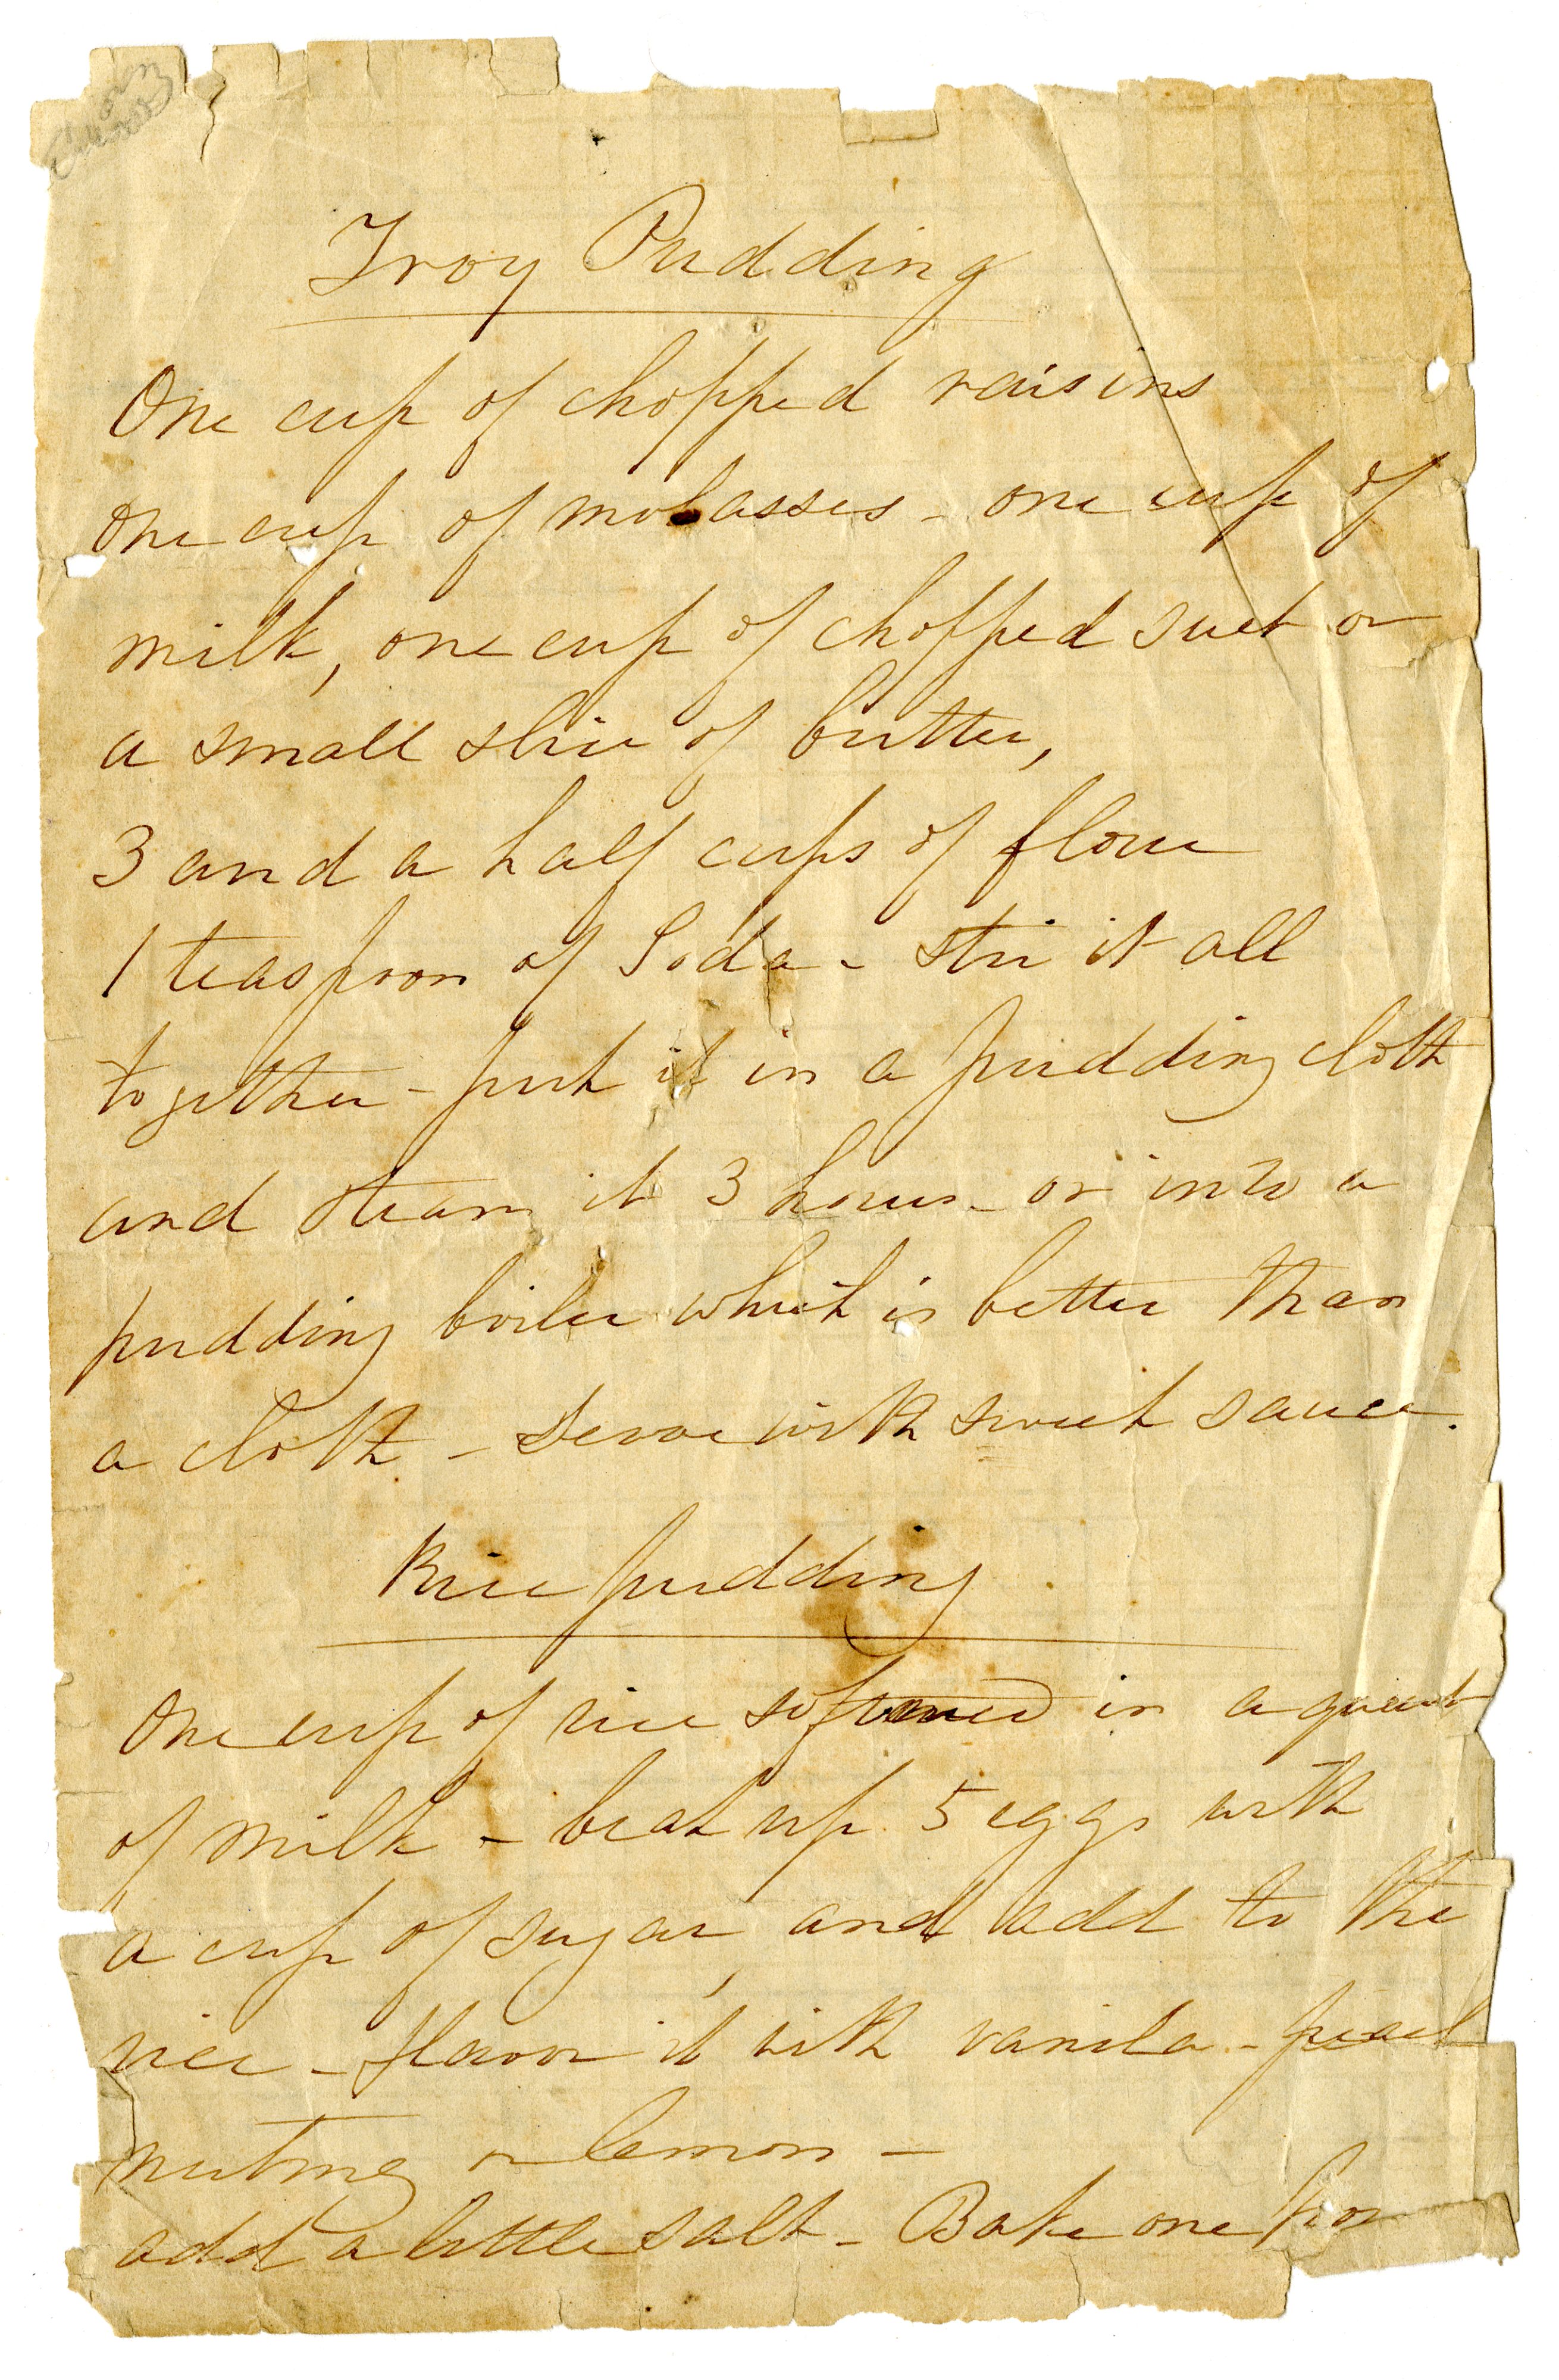 Troy Pudding
One cup of chopped raisins
one cup of molasses - one cup of
milk, one cup of chopped suet or
a small slice of butter,
3 and a half cups of flour
1 teaspoon of Soda - stir it all
together - put it in a pudding cloth
and steam it 3 hours - or into a
pudding boiler which is better than
a cloth - serve with sweet sauce.
Rice pudding
One cup of rice softened in a quart
of milk - beat up 5 eggs with
a cup of sugar, and add to the
rice - flavor it with vanila -
nutmeg or lemon -
add a little salt - Bake one hou